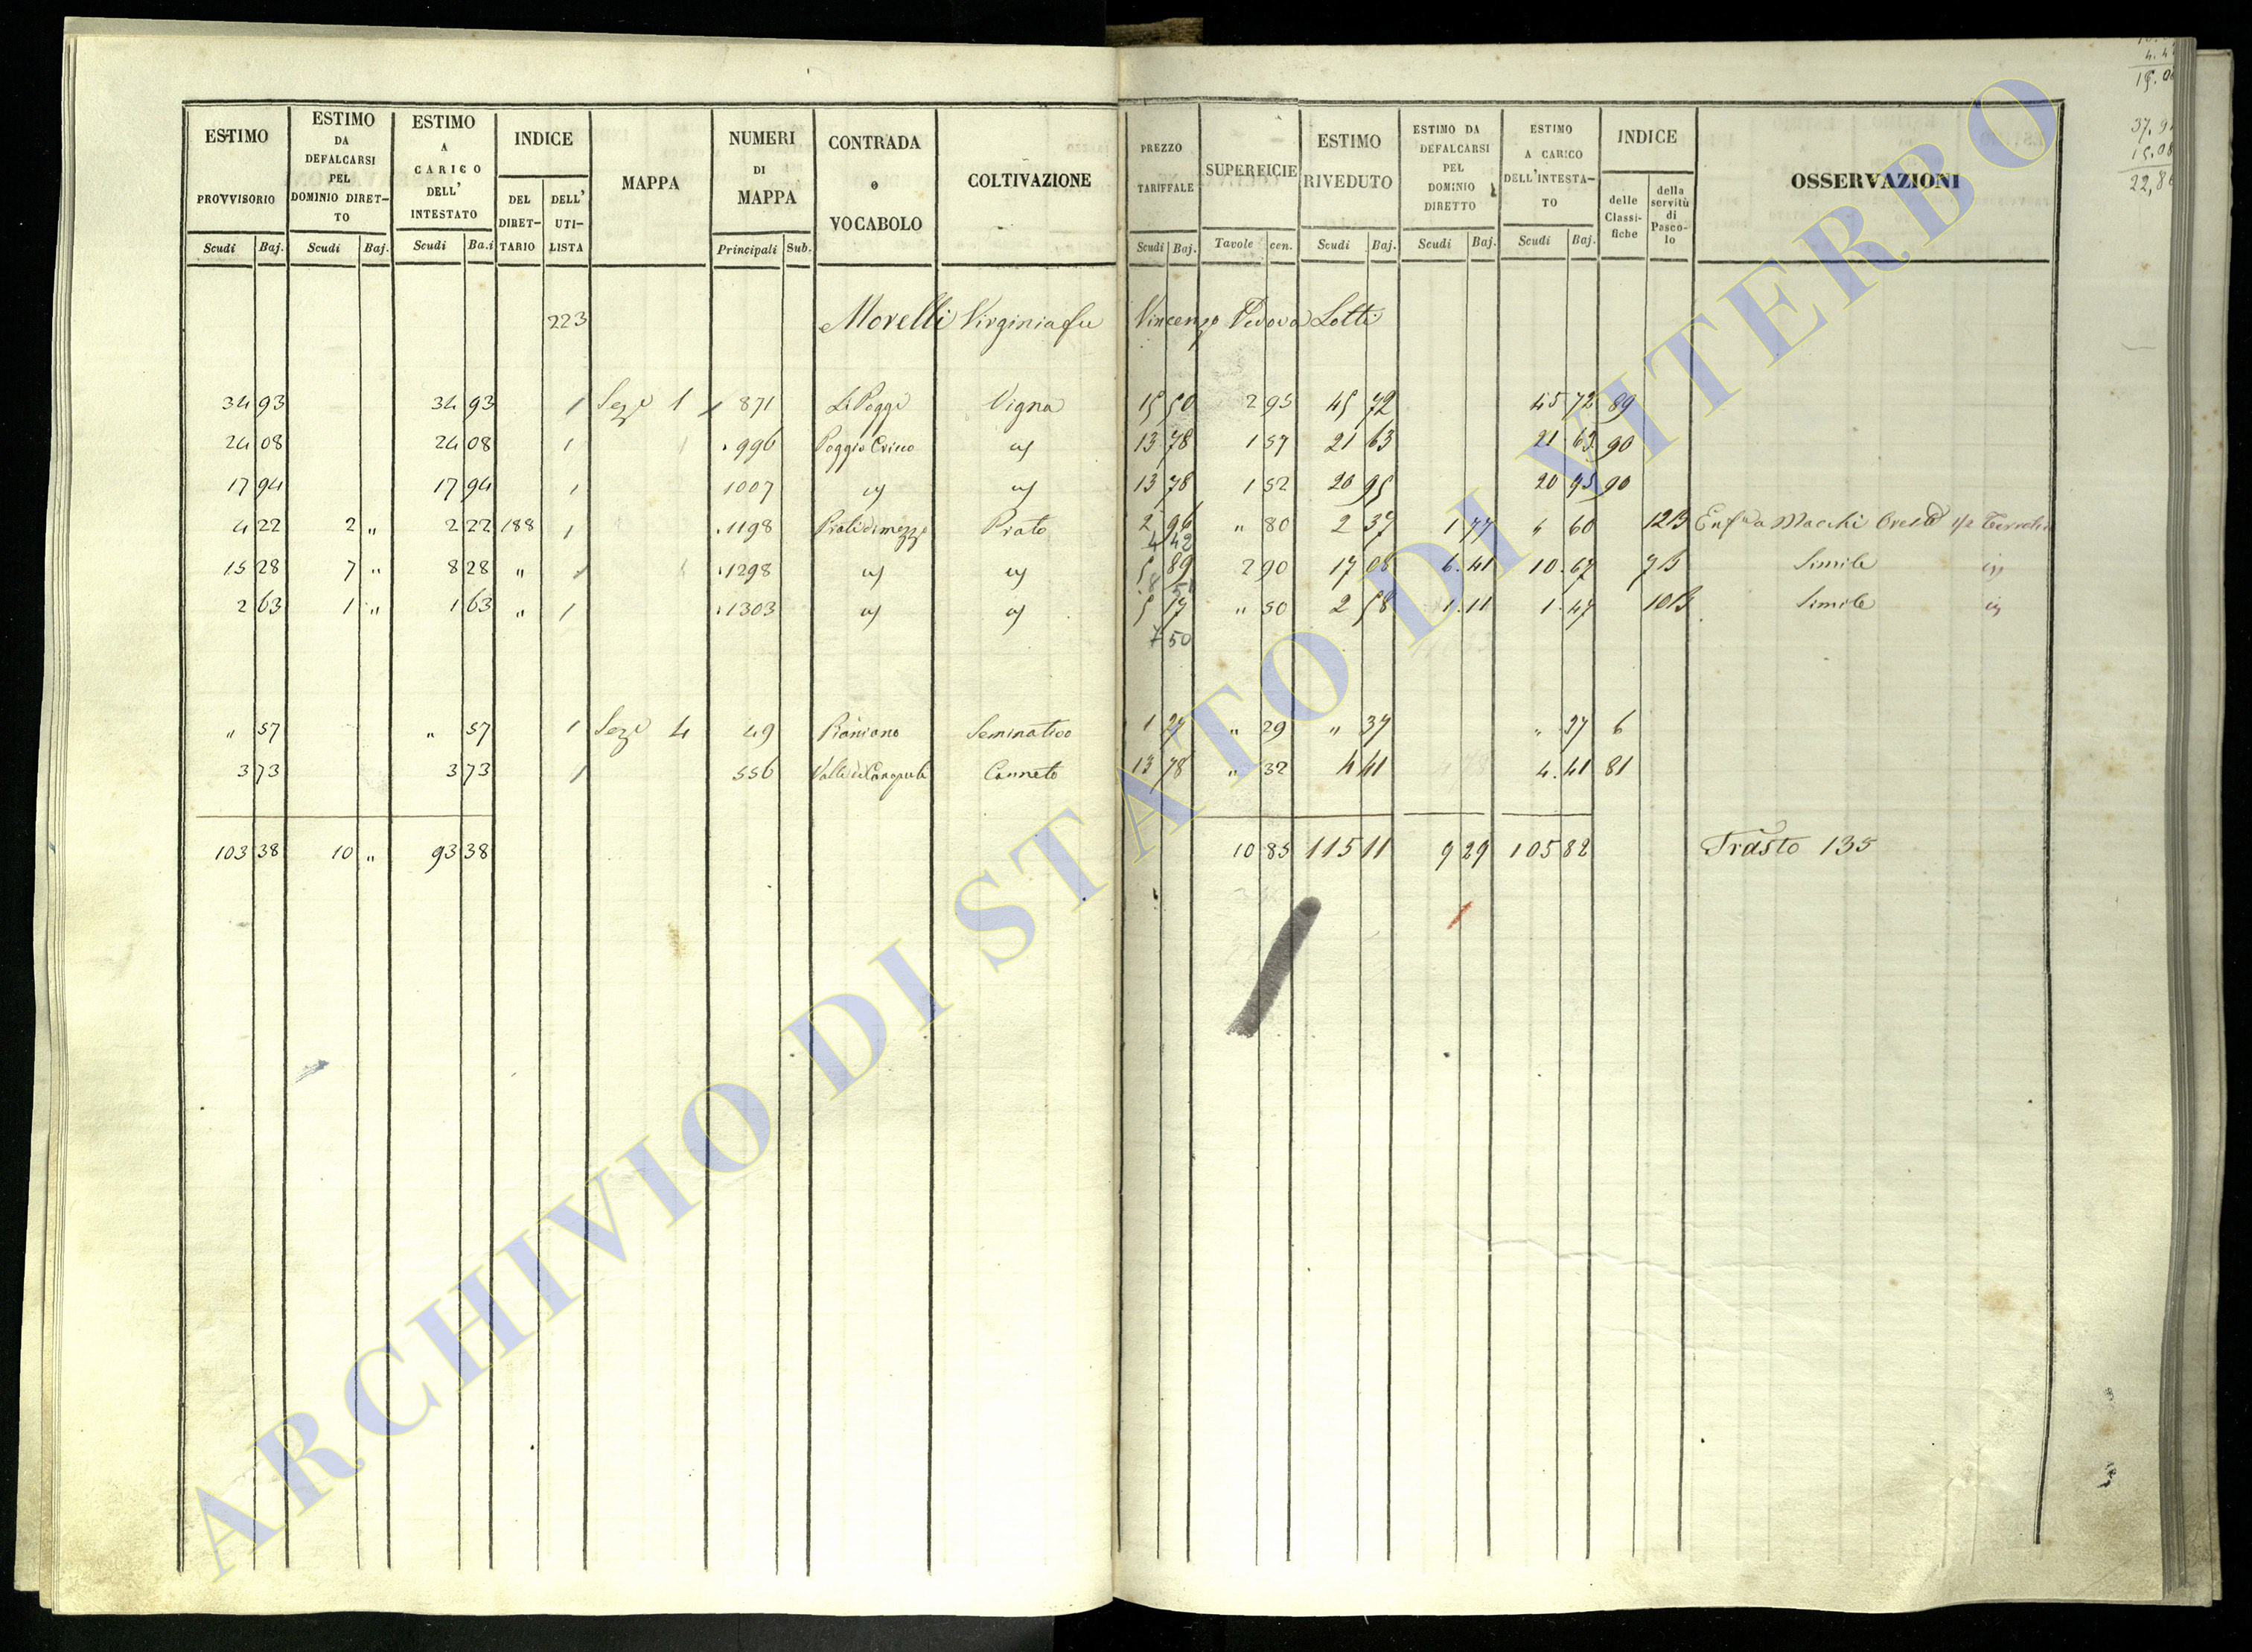 ESTIMO PROVVISORIO Scudi Baj.
ESTIMO DA DEFALCARSI PEL DOMINIO DIRET-TO Scudi Baj.
ESTIMO A CARICO DELL' INTESTATO Scudi Ba.i
INDICE DEL DIRET-TARIO DELL' UTI-LISTA
MAPPA
NUMERI DI MAPPA Principali Sub.
CONTRADA o VOCABOLO
COLTIVAZIONE
PREZZO TARIFFALE Scudi Baj.
SUPERFICIE Tavole cen.
ESTIMO RIVEDUTO Scudi Baj.
ESTIMO DA DEFALCARSI PEL DOMINIO DIRETTO Scudi Baj.
ESTIMO A CARICO DELL'INTESTA-TO Scudi Baj.
INDICE delle Classi-fiche della servitù di Pasco-lo
OSSERVAZIONI
223 Morelli Virginia fu Vincenzo Vedova Lotti
34 93 34 93 1 Sez 1 871 Li Poggi Vigna 15 50 2 95 45 72 45 72 89
24 08 24 08 1 996 Poggio 13 78 1 57 21 63 21 63 90
17 94 17 94 1 1007 13 78 1 52 20 95 20 95 90
4 22 2 " 2 22 188 1 1198 Prati di mezzo Prato 2 96 " 80 2 37 1 77 " 60 12B Macchi
4 42
15 28 7 " 8 28 " 1 1298 5 89 2 90 17 08 6.41 10.67 7B Simile
2 63 1 " 1 63 " 1 1303 5 17 " 50 2 58 1.11 1.47 10B Simile
7 50
" 57 " 57 1 Sez 4 49 Pianiano Seminativo 1 27 " 29 " 37 " 37 6
3 73 3 73 1 556 Canneto 13 78 " 32 4 41 4.41 81
103 38 10 " 93 38 10 85 115 11 9 29 105 82 Trasto 135
ARCHIVIO DI STATO DI VITERBO